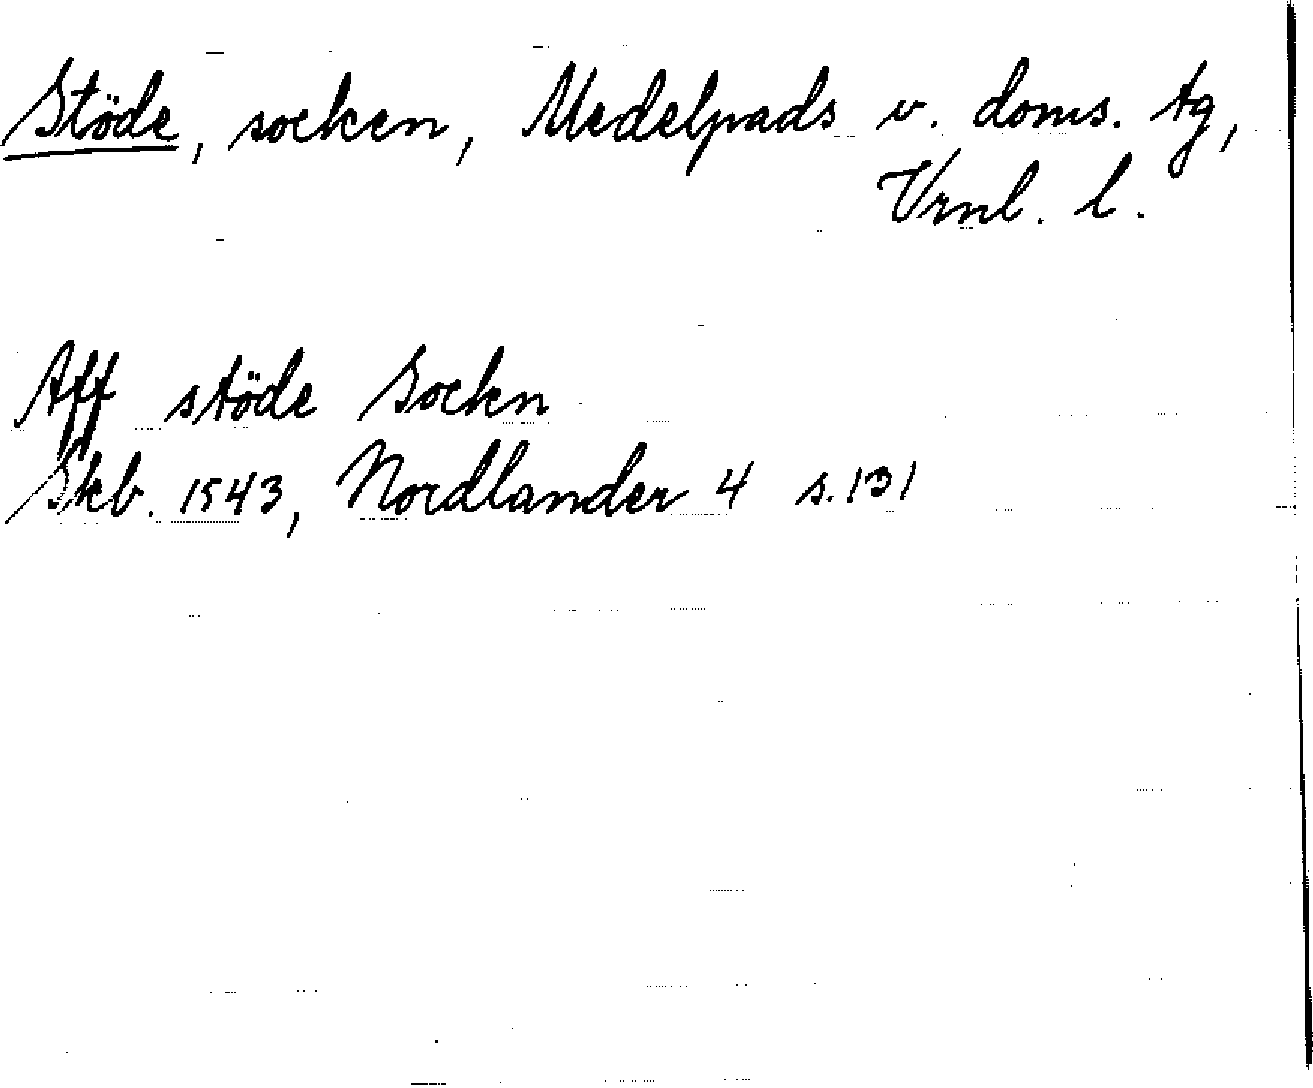 Stöde, socken, Medelpads v. doms. tg,
Vrnl. l.
Aff stöde Sockn
Skb. 1543, Nordlander 4 s. 131